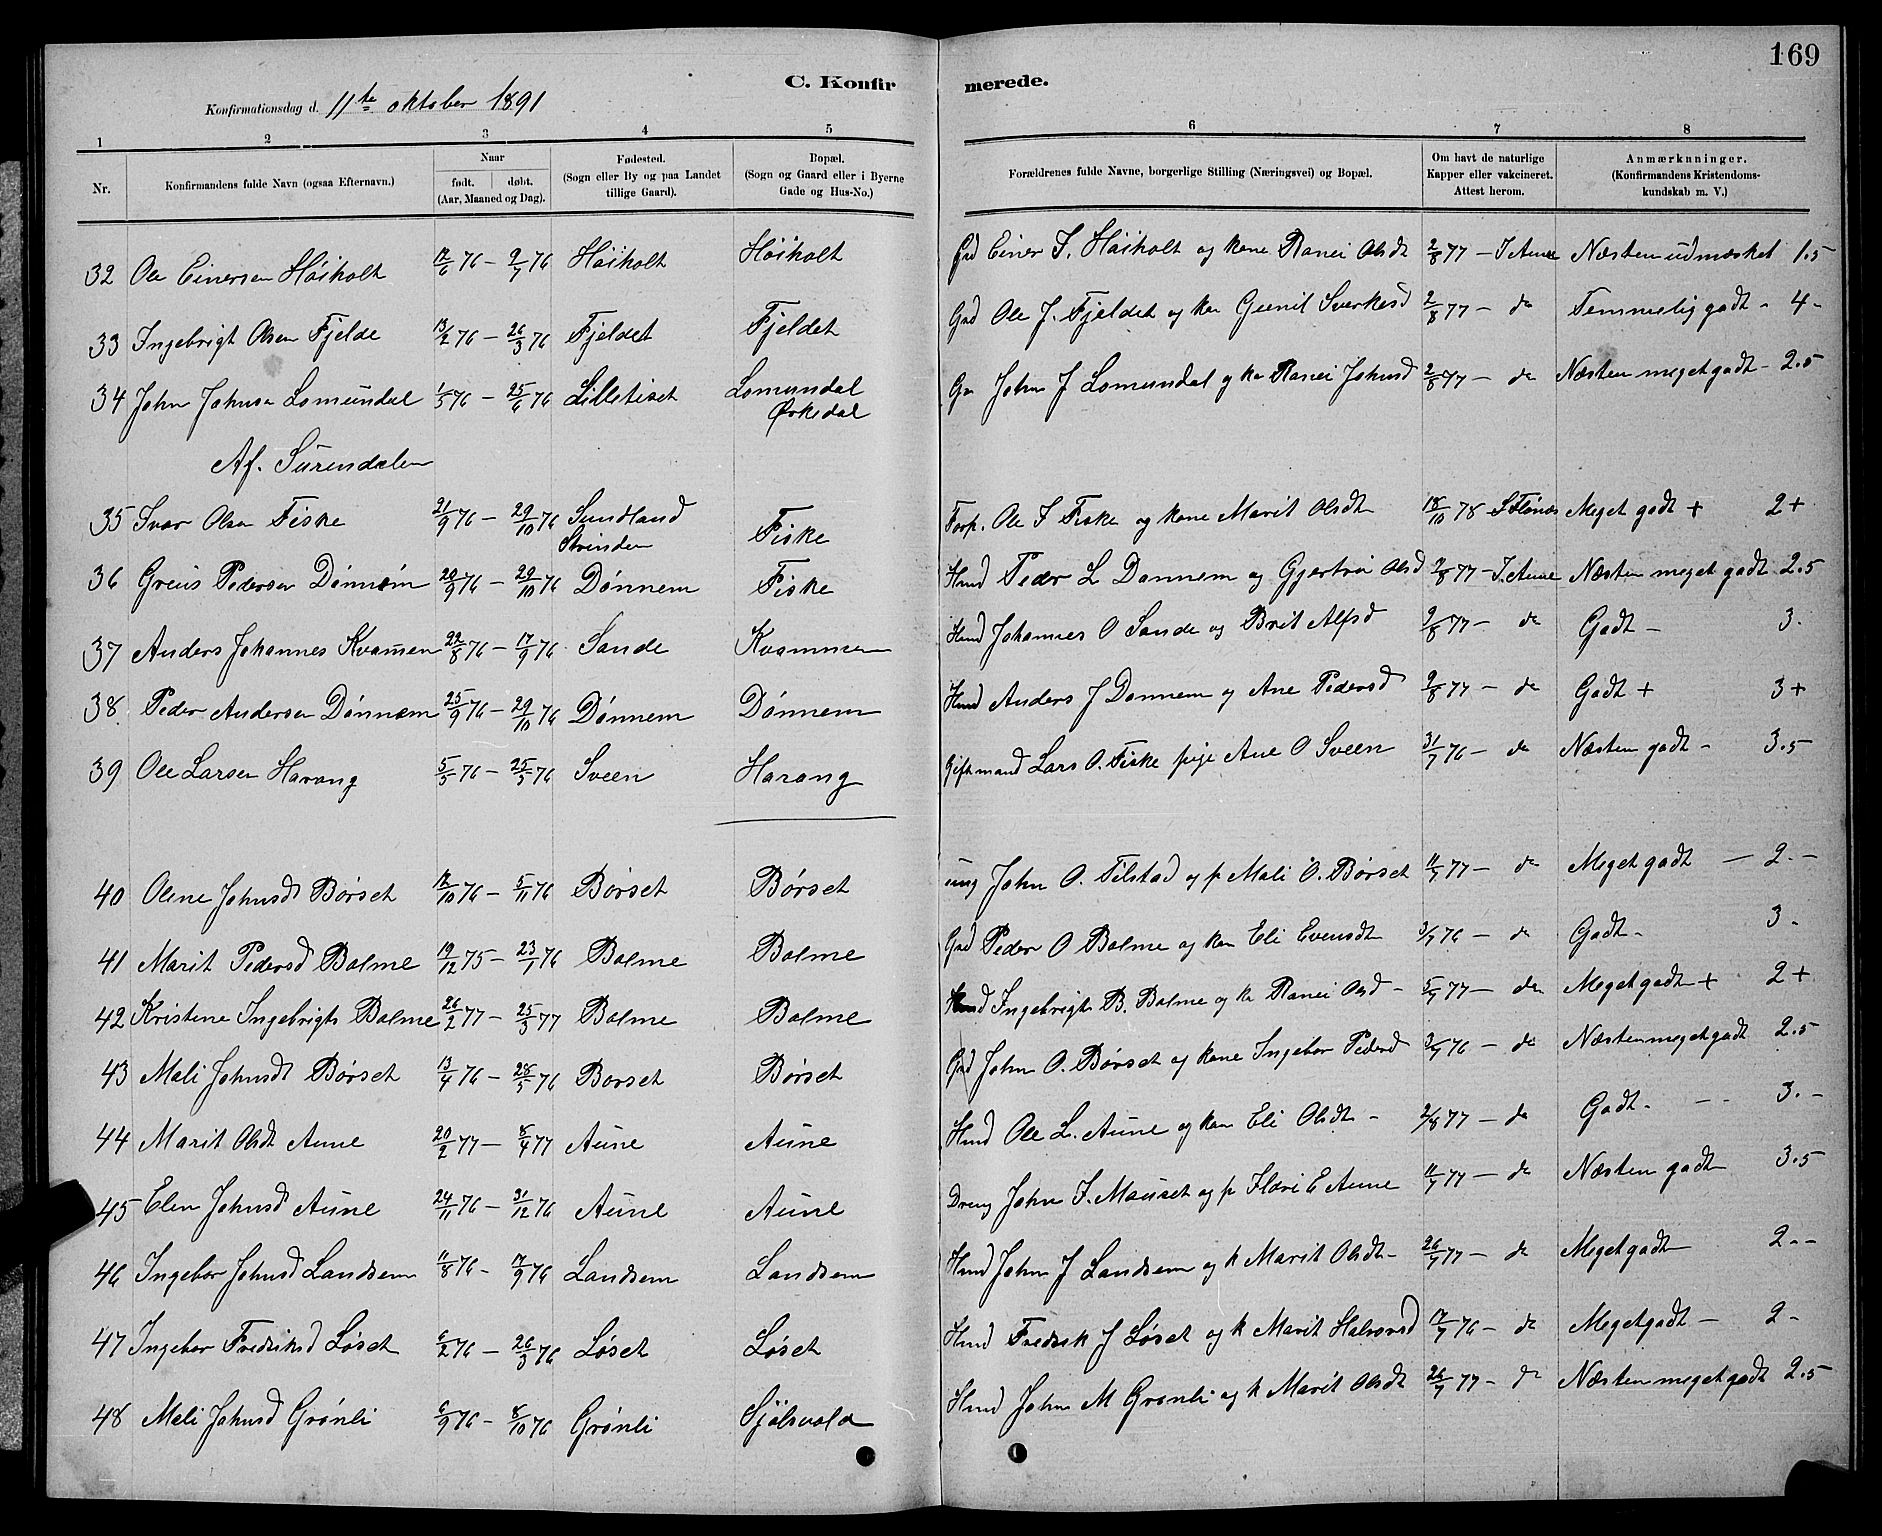 169
C. Konfirmerede.
Konfirmationsdag d. 11te oktober 1891
1 2 3 4 5 6 7 8
Nr. Konfirmandens fulde Navn (ogsaa Efternavn.) Naar født. døbt. (Aar, Maaned og Dag). Fødested. (Sogn eller By og paa Landet tillige Gaard). Bopæl. (Sogn og Gaard eller i Byerne Gade og Hus-No.) Forældrenes fulde Navne, borgerlige Stilling (Næringsvei) og Bopæl. Om havt de naturlige Kapper eller vakcineret. Attest herom. Anmærkninger. (Konfirmandens Kristendomskundskab m. V.)
32 Ole Einersen Høiholt 12/6 76 – 9/7 76 Høiholt Høiholt Grd Einer I. Høiholt og kone Ranei Olsdt 2/8 77 – I Aune Næsten udmærket 1.5
33 Ingebrigt Olsen Fjelde 13/2 76 – 26/3 76 Fjeldet Fjeldet Grd Ole J. Fjeldet og ko Gunil Sverkesd 2/8 77 – do Temmelig godt – 4 –
34 John Johnsen Lomundal 1/5 76 – 25/6 76 Lilletiset Lomundal Ørkedal John J Lomundal og ko Ranei Johnsd 2/8 77 – do Næsten meget godt – 2.5
Af. Surendalen
35 Ivar Olsen Fiske 21/9 76 – 29/10 76 Sundland Strinden Fiske Forp. Ole I Fiske og kone Marit Olsdt 18/10 78 Meget godt + 2+
36 Greiis Pedersen Dönnem 20/9 76 – 29/10 76 Dönnem Fiske Hmd Peder L Donnem og Gjertrü Olsd 2/8 77 – I. Aune Næsten meget godt 2.5
37 Anders Johannes Kvamen 22/8 76 – 17/9 76 Sande Kvammen Hmd Johannes O Sande og Brit Alfsd 2/8 77 – do Godt – 3.
38. Peder Andersen Dönnem 25/9 76 – 29/10 76 Dönnem Dönnem Hmd Anders J Donnem og Ane Pedersd 2/8 77 – do Godt + 3+
39 Ole Larsen Harang 5/5 76 – 25/5 76 Sveen Harang Giftmand Lars O. Fiske pige Ane O Sveen 31/7 76 – do Næsten godt – 3.5
40 Olene Johnsdt Börset 12/10 76 – 5/11 76 Börset Börset ung John O. Tilstad og p Mali O. Börset 11/7 77 – do Meget godt – 2. –
41 Marit Pedersd Bolme 19/12 75 – 23/1 76 Bolme Bolme Grd Peder O Bolme og kon Eli Evensdt 3/7 76 – do Godt – 3 –
42 Kristine Ingebrigts Bolme 26/2 77 – 25/3 77 Bolme Bolme Ingebrigt B. Bolme og ko Ranei Olsd – 5/7 77 – do Meget godt + 2+
43 Mali Johnsdt Börset 13/4 76 – 28/5 76 Borset Börset Grd John O. Börset og kone Ingebor Pedersd 3/7 76 – do Næsten meget godt 2.5
44 Marit Olsdt Aune 20/2 77 – 8/4 77 Aune Aune Hmd Ole L. Aune og kon Eli Olsdt – 2/8 77 – do Godt – – 3. –
45 Elen Johnsd Aune 24/11 76 – 31/12 76 Aune Aune Dreng John I. Mauset og p Flori E Aune 11/7 77 – do Næsten godt 3.5
46 Ingebor Johnsd Landsem 11/8 76 – 17/9 76 Landsem Landsem Hmd John J Landsem og k Marit Olsdt – 26/7 77 – do Meget godt 2 – –
47 Ingebor Fredriksd Löset 6/2 76 – 26/3 76 Löset Löset Hmd Fredrik J Löset og k Marit Halvorsd 17/7 76 – do Meget godt – 2 –
48 Mali Johnsd Grönli 6/9 76 – 8/10 76 Grönli Sjölsvold Hmd John M Gronli og k Marit Olsdt 26/7 77 – do Næsten meget godt 2.5